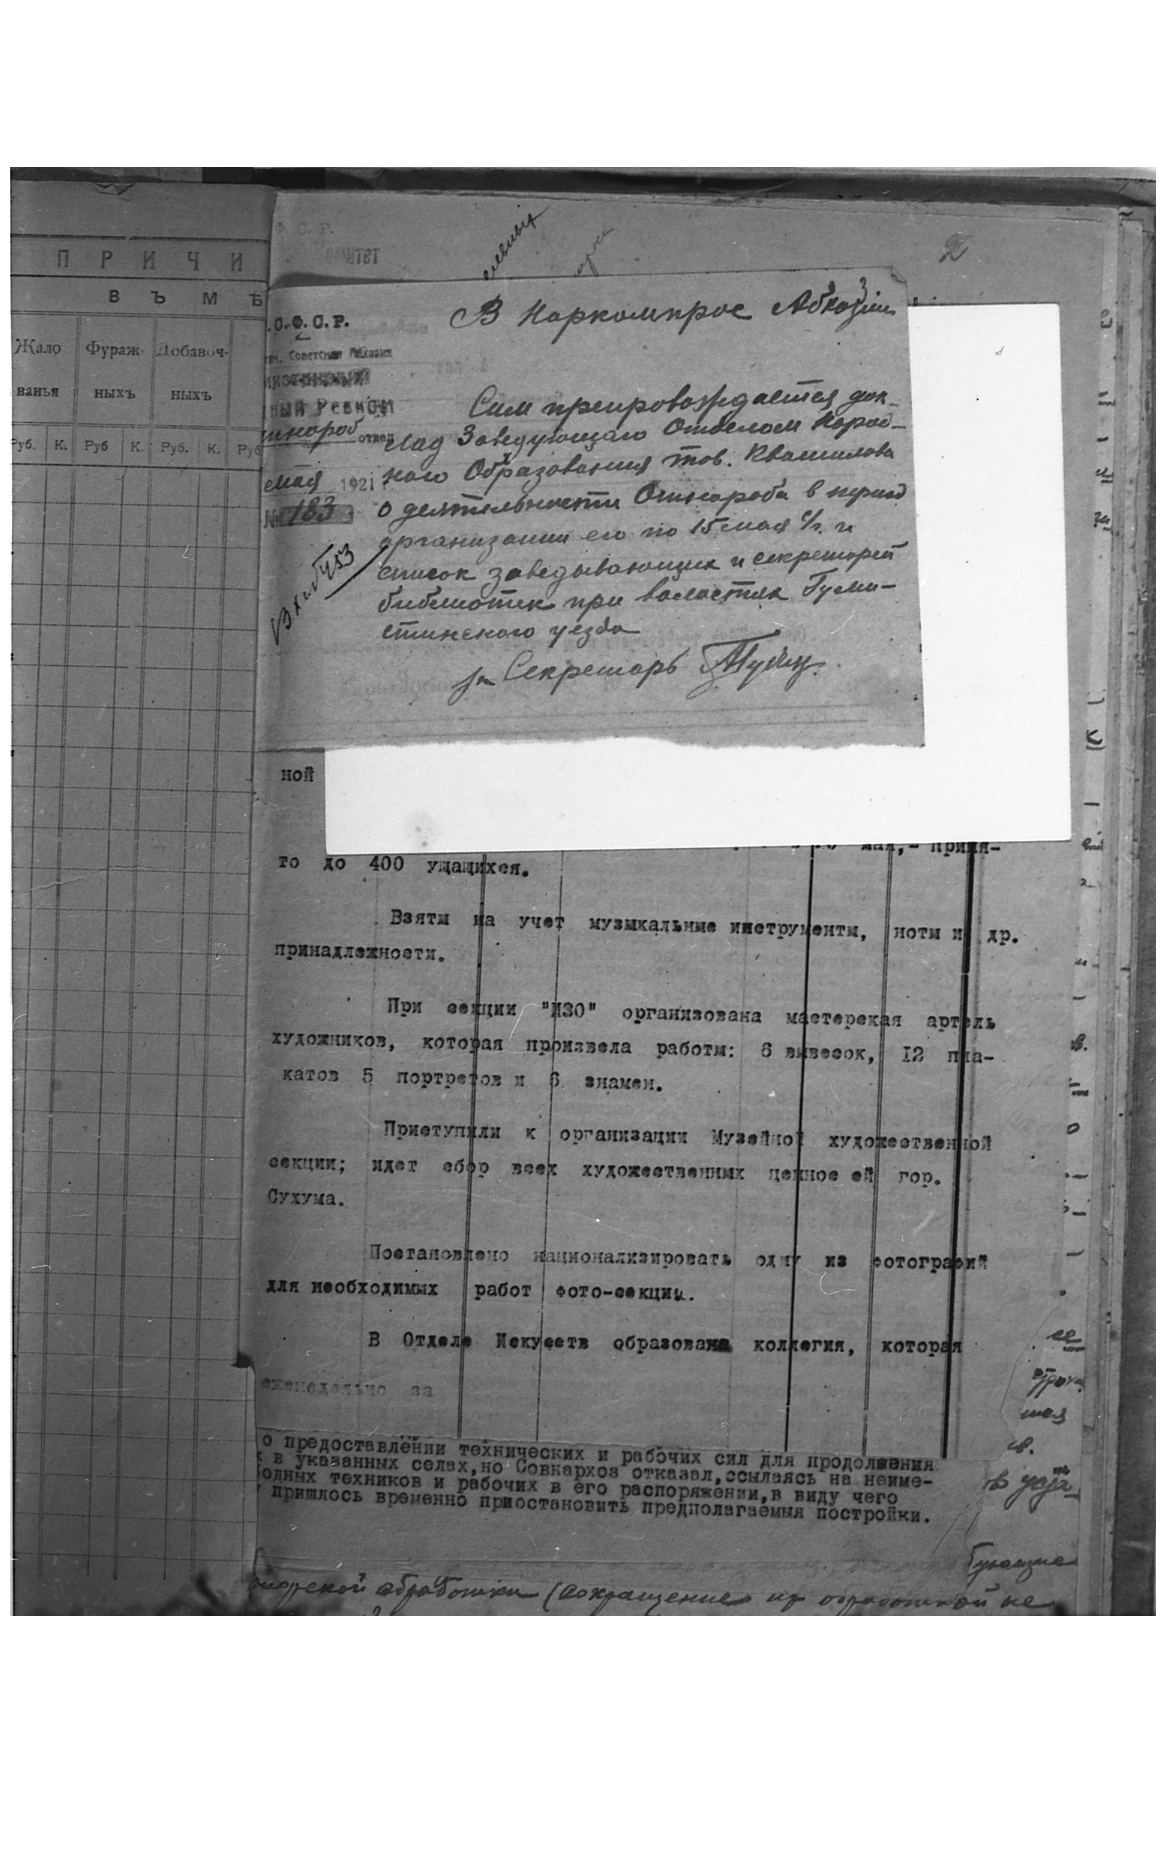 П Р И Ч И
В Ъ М Ѣ
Жало
ванья
Фураж
ныхъ
Добавоч-
ныхъ
Руб. К. Руб К. Руб. К. Руб
Ф. С. Р.
КОМИТЕТ
2
В Наркомпрос Абхазии
.С.Ф.С.Р.
Советская Абхазия
ный Ревком
отдел
мая 1921
№ 183
Сим препровождается док-
лад Заведующего Отделом Народ-
ного Образования тов. Квашилова
о деятельности Отнароба в период
организации его по 15 мая с/г. и
список заведывающих и секретарей
библиотек при волостях Гуми-
стинского уезда
Секретарь
ной
мая,- приня-
то до 400 ущащихся.
Взяты на учет музыкальные инструменты, ноты и др.
принадлежности.
При секции "ИЗО" организована мастерская артель
художников, которая произвела работы: 6 вывесок, 12 пла-
катов 5 портретов и 6 знамен.
Приступили к организации Музейной художественной
секции; идет сбор всех художественных ценностей гор.
Сухума.
Постановлено национализировать одну из фотографий
для необходимых работ фото-секции.
В Отделе Искусств образована коллегия, которая
еженедельно за
о предоставлении технических и рабочих сил для продолжения
в указанных селах,но Совкархоз отказал,ссылаясь на неиме-
одных техников и рабочих в его распоряжении,в виду чего
пришлось временно приостановить предполагаемыя постройки.
обработки (сокращение